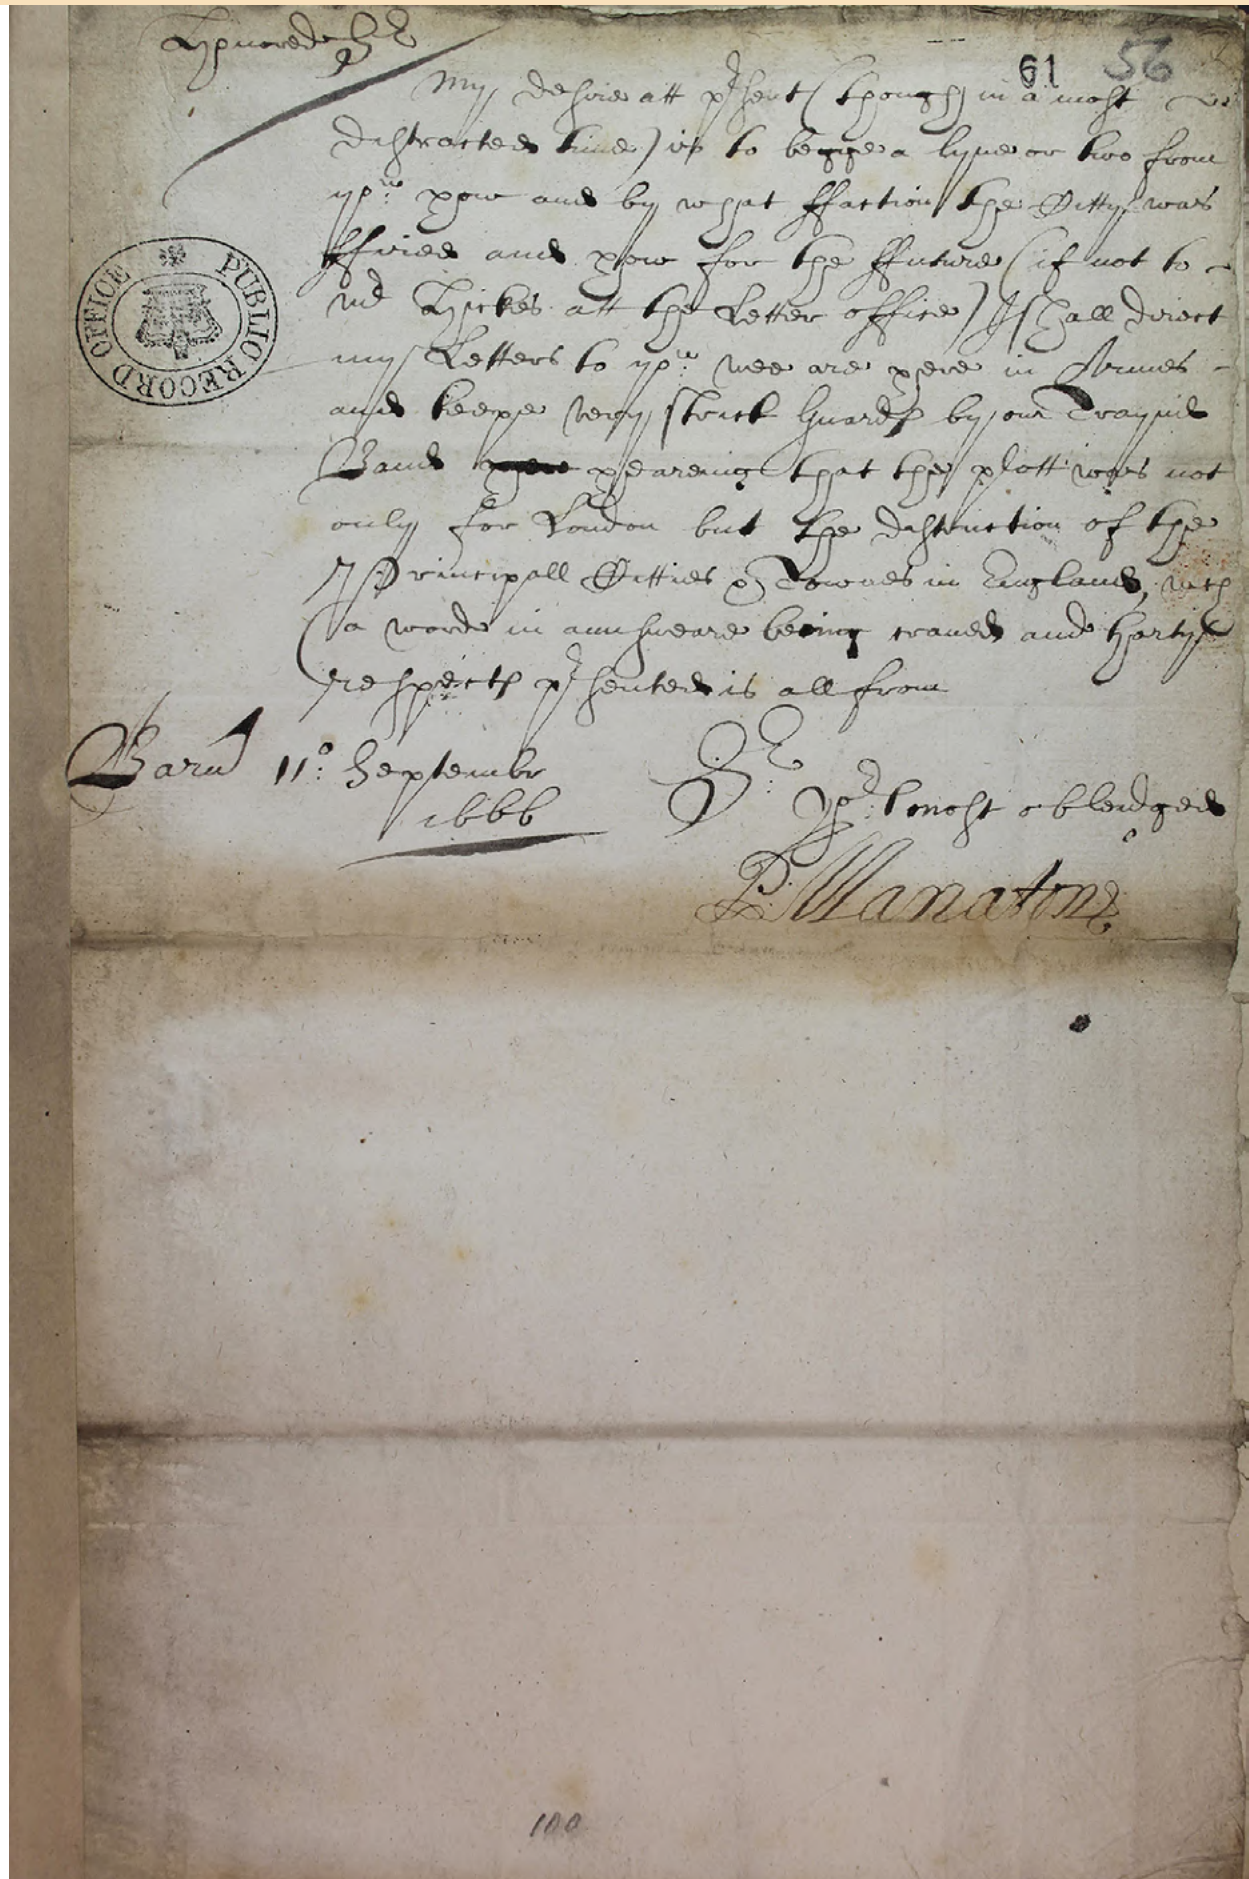 Honored Sr
61 56
My desire att p'sent (though in a most
distracted time) is to begge a lyne or two from
yow how and by what ffaction the Citty was
ffired and how for the ffuture (if not to
Mr Hickes att the Letter office) I shall direct
my Letters to yow wee are here in Armes -
and keepe very strict Guards by our Trayned
Band hearing that the plott was not
only for London but the distruction of the
Principall Citties & Townes in England, wch
a word in annsweare being craved and harty
respects p'sented is all from
Barn 11o: September
1666
Sr:
Yor: most obleidged
P: Manaton
PUBLIC RECORD OFFICE
100